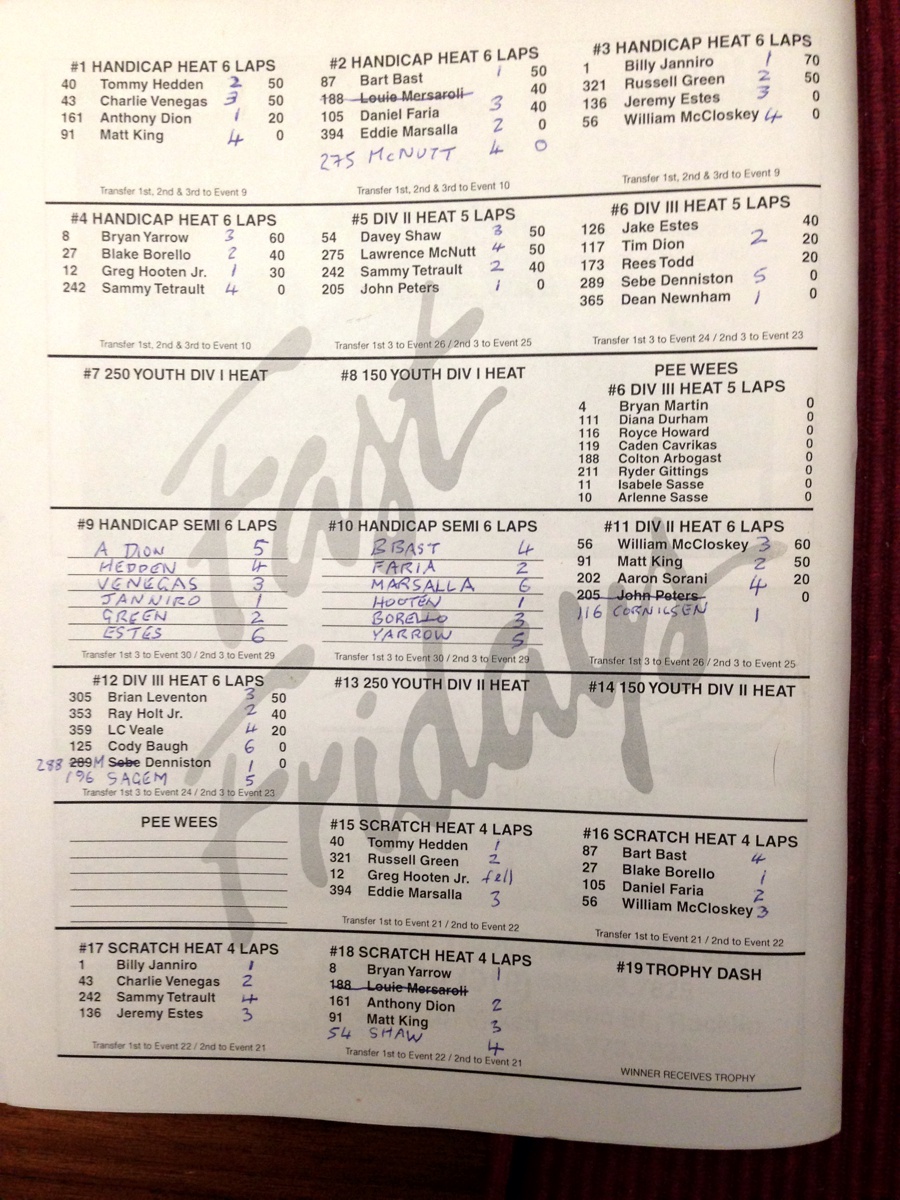 #1 HANDICAP HEAT 6 LAPS
40 Tommy Hedden 2 50
43 Charlie Venegas 3 50
161 Anthony Dion 1 20
91 Matt King 4 0
Transfer 1st, 2nd & 3rd to Event 9
#2 HANDICAP HEAT 6 LAPS
87 Bart Bast 1 50
188 Louie Mersaroli 40
105 Daniel Faria 3 40
394 Eddie Marsalla 2 0
275 McNUTT 4 0
Transfer 1st, 2nd & 3rd to Event 10
#3 HANDICAP HEAT 6 LAPS
1 Billy Janniro 1 70
321 Russell Green 2 50
136 Jeremy Estes 3 0
56 William McCloskey 4 0
Transfer 1st, 2nd & 3rd to Event 9
#4 HANDICAP HEAT 6 LAPS
8 Bryan Yarrow 3 60
27 Blake Borello 2 40
12 Greg Hooten Jr. 1 30
242 Sammy Tetrault 4 0
Transfer 1st, 2nd & 3rd to Event 10
#5 DIV II HEAT 5 LAPS
54 Davey Shaw 3 50
275 Lawrence McNutt 4 50
242 Sammy Tetrault 2 40
205 John Peters 1 0
Transfer 1st 3 to Event 26 / 2nd 3 to Event 25
#6 DIV III HEAT 5 LAPS
126 Jake Estes 40
117 Tim Dion 2 20
173 Rees Todd 20
289 Sebe Denniston 5 0
365 Dean Newnham 1 0
Transfer 1st 3 to Event 24 / 2nd 3 to Event 23
#7 250 YOUTH DIV I HEAT
#8 150 YOUTH DIV I HEAT
PEE WEES
#6 DIV III HEAT 5 LAPS
4 Bryan Martin 0
111 Diana Durham 0
116 Royce Howard 0
119 Caden Cavrikas 0
188 Colton Arbogast 0
211 Ryder Gittings 0
11 Isabele Sasse 0
10 Arlenne Sasse 0
#9 HANDICAP SEMI 6 LAPS
A DION 5
HEDDEN 4
VENEGAS 3
JANNIRO 1
GREEN 2
ESTES 6
Transfer 1st 3 to Event 30 / 2nd 3 to Event 29
#10 HANDICAP SEMI 6 LAPS
B BAST 4
FARIA 2
MARSALLA 6
HOOTEN 1
BORELLO 3
YARROW 5
Transfer 1st 3 to Event 30 / 2nd 3 to Event 29
#11 DIV II HEAT 6 LAPS
56 William McCloskey 3 60
91 Matt King 2 50
202 Aaron Sorani 4 20
205 John Peters 0
116 CORNILSEN 1
Transfer 1st 3 to Event 26 / 2nd 3 to Event 25
#12 DIV III HEAT 6 LAPS
305 Brian Leventon 3 50
353 Ray Holt Jr. 2 40
359 LC Veale 4 20
125 Cody Baugh 6 0
288 289 M Sebe Denniston 1 0
196 SAGEM 5
Transfer 1st 3 to Event 24 / 2nd 3 to Event 23
#13 250 YOUTH DIV II HEAT
#14 150 YOUTH DIV II HEAT
PEE WEES
#15 SCRATCH HEAT 4 LAPS
40 Tommy Hedden 1
321 Russell Green 2
12 Greg Hooten Jr. fell
394 Eddie Marsalla 3
Transfer 1st to Event 21 / 2nd to Event 22
#16 SCRATCH HEAT 4 LAPS
87 Bart Bast 4
27 Blake Borello 1
105 Daniel Faria 2
56 William McCloskey 3
Transfer 1st to Event 21 / 2nd to Event 22
#17 SCRATCH HEAT 4 LAPS
1 Billy Janniro 1
43 Charlie Venegas 2
242 Sammy Tetrault 4
136 Jeremy Estes 3
Transfer 1st to Event 22 / 2nd to Event 21
#18 SCRATCH HEAT 4 LAPS
8 Bryan Yarrow 1
188 Louie Mersaroli
161 Anthony Dion 2
91 Matt King 3
54 SHAW 4
Transfer 1st to Event 22 / 2nd to Event 21
#19 TROPHY DASH
WINNER RECEIVES TROPHY
Fast
Fridays